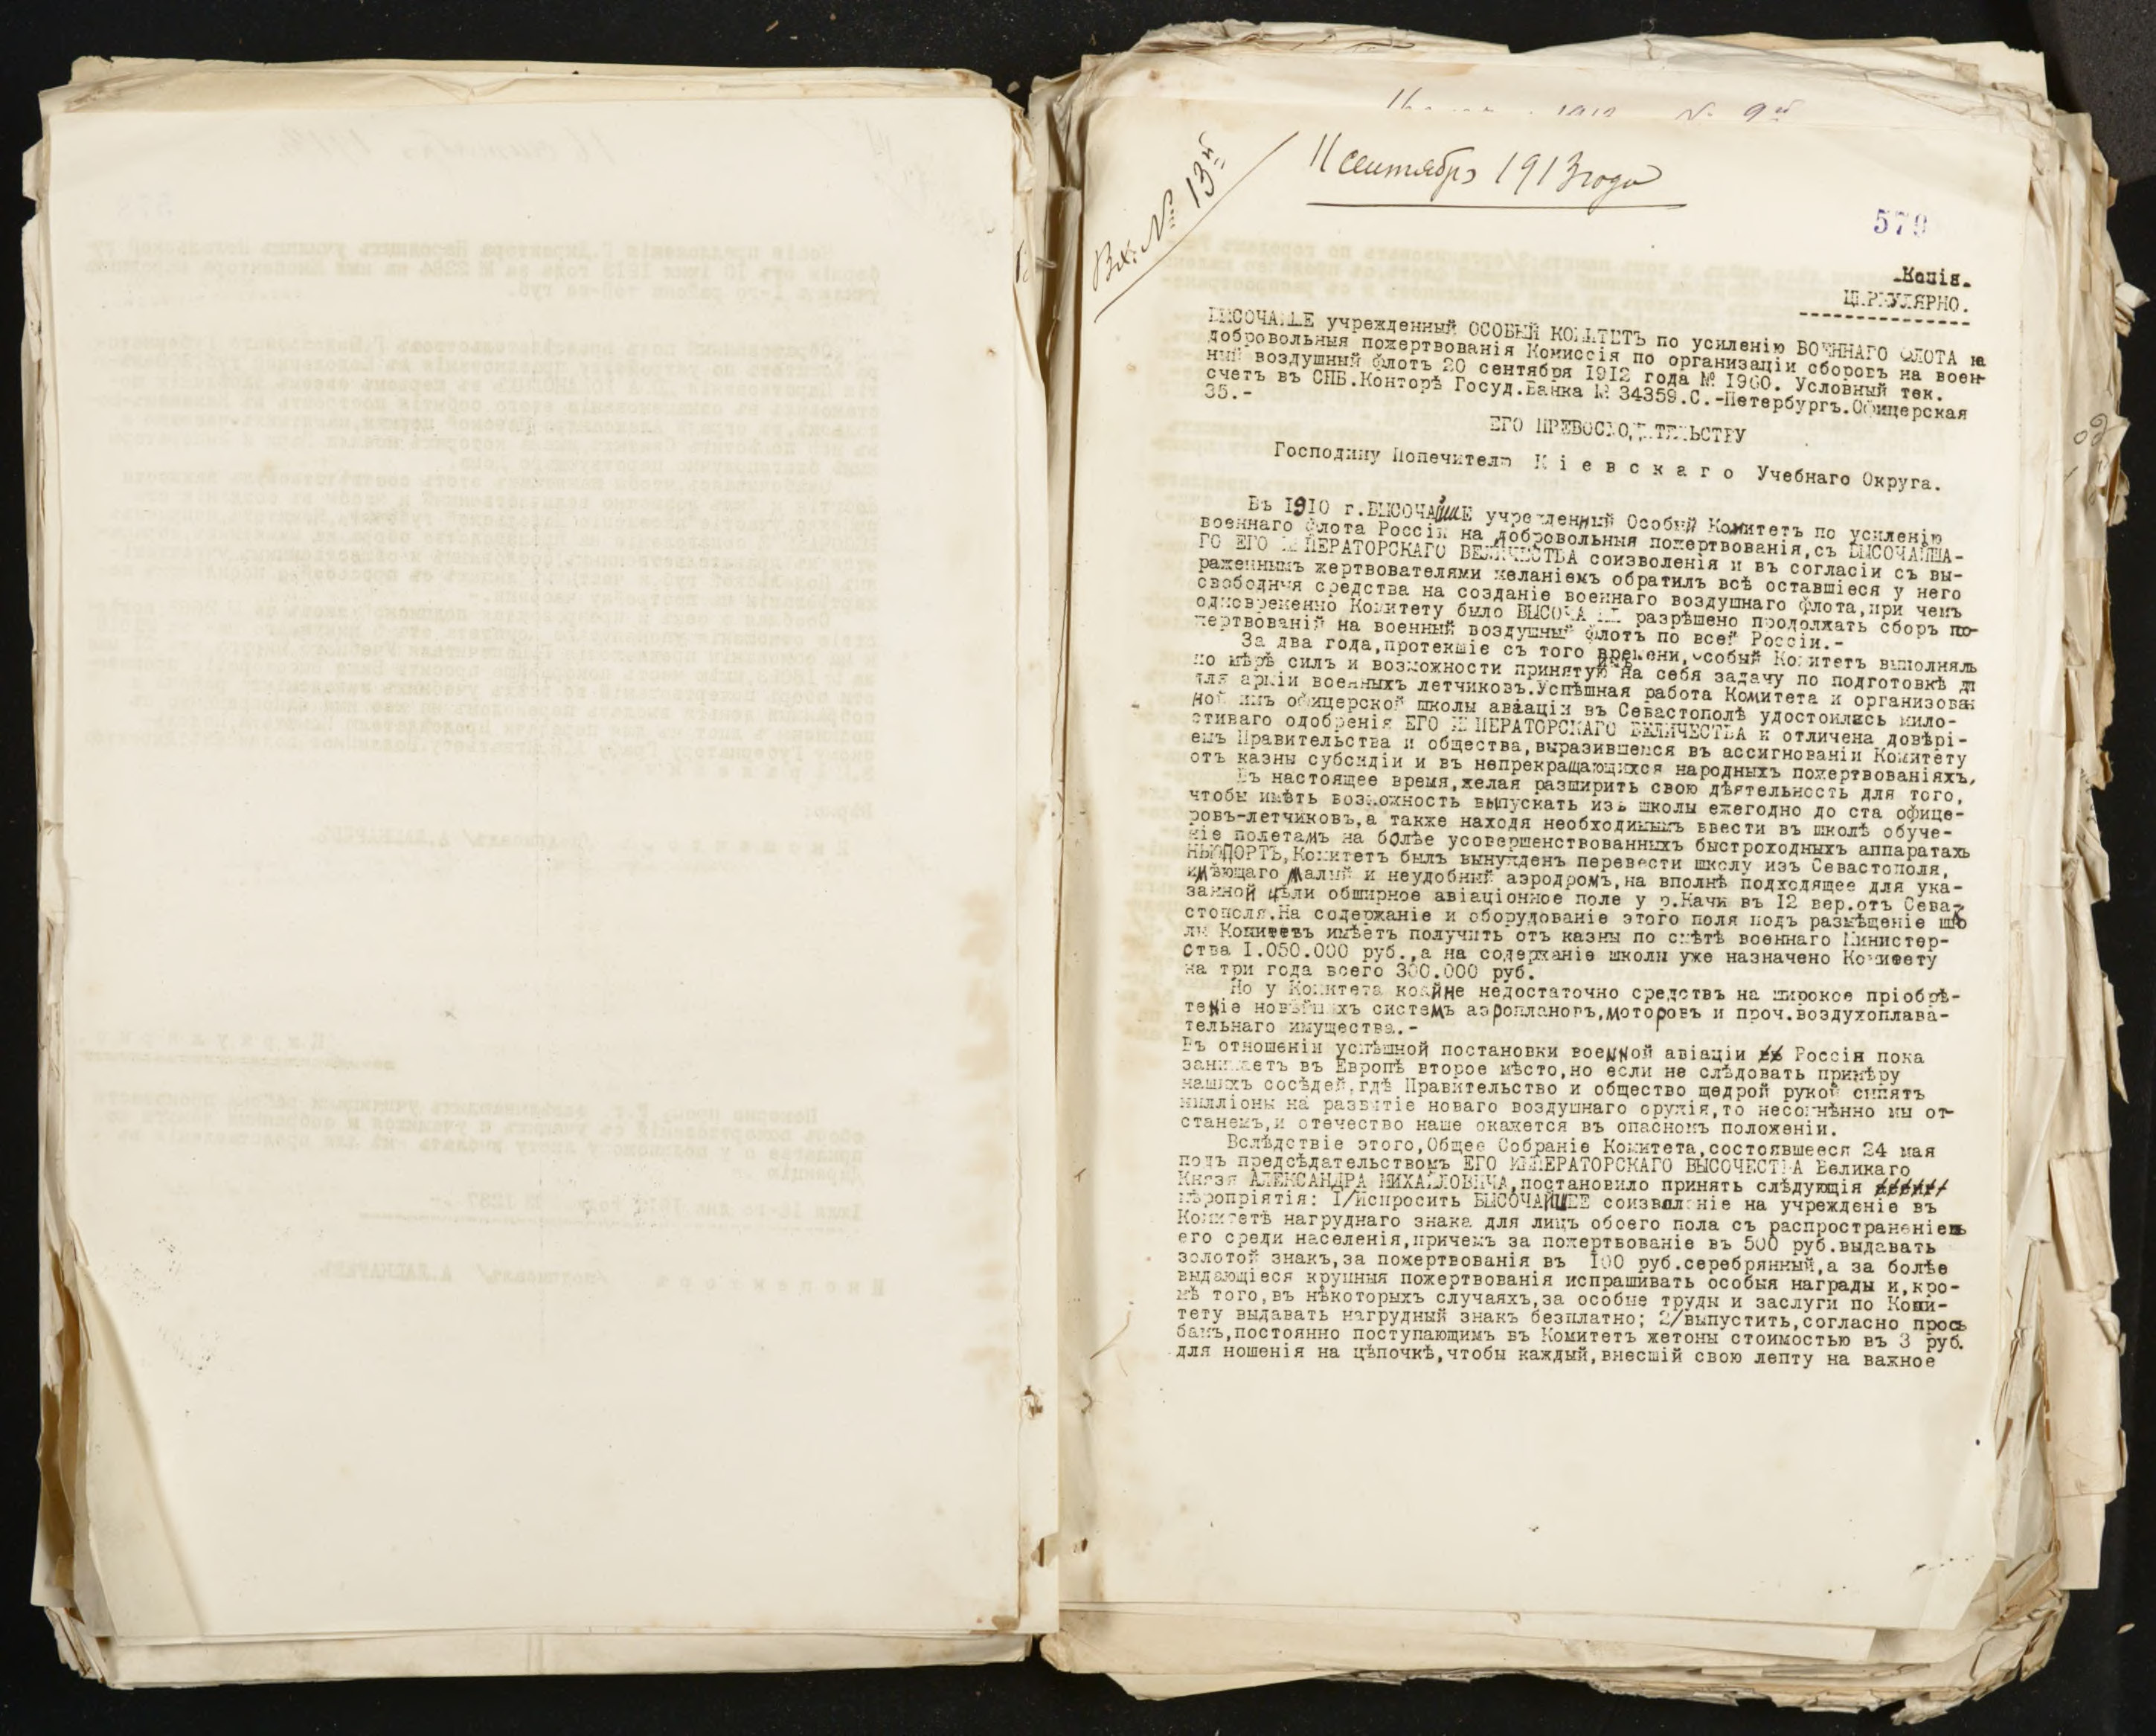 11 сентября 1913 года
Вх. № 13й
579
Копія.
ЦИРКУЛЯРНО.
ВЫСОЧАЙШЕ учрежденный ОСОБЫЙ КОМИТЕТЪ по усиленію ВОЕННАГО ФЛОТА на
добровольныя пожертвованія Комиссія по организаціи сборовъ на воен-
ный воздушный флотъ 20 сентября 1912 года № 1960. Условный тек.
счетъ въ СПБ.Конторѣ Госуд.Банка № 34359.С.-Петербургъ.Офицерская
35.-
ЕГО ПРЕВОСХОДИТЕЛЬСТВУ
Господину Попечителю К і е в с к а г о Учебнаго Округа.
Въ 1910 г.ВЫСОЧАЙШЕ учрежденный Особый Комитетъ по усиленію
военнаго флота Россіи на добровольныя пожертвованія,съ ВЫСОЧАЙША-
ГО ЕГО ИМПЕРАТОРСКАГО ВЕЛИЧЕСТВА соизволенія и въ согласіи съ вы-
раженнымъ жертвователями желаніемъ обратилъ всѣ оставшіеся у него
свободныя средства на созданіе военнаго воздушнаго флота,при чемъ
одновременно Комитету было ВЫСОЧАЙШЕ разрѣшено продолжать сборъ по-
жертвованій на военный воздушный флотъ по всей Россіи.-
За два года,протекшіе съ того времени,особый Комитетъ выполнялъ
по мѣрѣ силъ и возможности принятую имъ на себя задачу по подготовкѣ дл
для арміи военныхъ летчиковъ.Успѣшная работа Комитета и организован
ной имъ офицерской школы авіаціи въ Севастополѣ удостоились мило-
стиваго одобренія ЕГО ИМПЕРАТОРСКАГО ВЕЛИЧЕСТВА и отличена довѣрі-
емъ Правительства и общества,выразившемся въ ассигнованіи Комитету
отъ казны субсидіи и въ непрекращающихся народныхъ пожертвованіяхъ,
Въ настоящее время,желая разширить свою дѣятельность для того,
чтобы имѣть возможность выпускать изъ школы ежегодно до ста офице-
ровъ-летчиковъ,а также находя необходимымъ ввести въ школѣ обуче-
ніе полетамъ на болѣе усовершенствованныхъ быстроходныхъ аппаратахъ
НЬЮПОРТЪ,Комитетъ былъ вынужденъ перевести школу изъ Севастополя,
имѣющаго малый и неудобный аэродромъ,на вполнѣ подходящее для ука-
занной цѣли обширное авіаціонное поле у р.Качи въ 12 вер.отъ Сева-
стополя.На содержаніе и оборудованіе этого поля подъ размѣщеніе шко
лы Комитетъ имѣетъ получить отъ казны по смѣтѣ военнаго Министер-
ства 1.050.000 руб.,а на содержаніе школы уже назначено Комитету
на три года всего 300.000 руб.
Но у Комитета крайне недостаточно средствъ на широкое пріобрѣ-
теніе новѣйшихъ системъ аэроплановъ,моторовъ и проч.воздухоплава-
тельнаго имущества.-
Въ отношеніи успѣшной постановки военной авіаціи Россія пока
занимаетъ въ Европѣ второе мѣсто,но если не слѣдовать примѣру
нашихъ сосѣдей,гдѣ Правительство и общество щедрой рукой сыпятъ
милліоны на развитіе новаго воздушнаго оружія,то несомнѣнно мы от-
станемъ,и отечество наше окажется въ опасномъ положеніи.
Вслѣдствіе этого,Общее Собраніе Комитета,состоявшееся 24 мая
подъ предсѣдательствомъ ЕГО ИМПЕРАТОРСКАГО ВЫСОЧЕСТВА Великаго
Князя АЛЕКСАНДРА МИХАЙЛОВИЧА,постановило принять слѣдующія
мѣропріятія: 1/Испросить ВЫСОЧАЙШЕЕ соизволеніе на учрежденіе въ
Комитетѣ нагруднаго знака для лицъ обоего пола съ распространеніемъ
его среди населенія,причемъ за пожертвованіе въ 500 руб.выдавать
золотой знакъ,за пожертвованія въ 100 руб.серебрянный,а за болѣе
выдающіеся крупныя пожертвованія испрашивать особыя награды и,кро-
мѣ того,въ нѣкоторыхъ случаяхъ,за особые труды и заслуги по Коми-
тету выдавать нагрудный знакъ безплатно; 2/выпустить,согласно прось
бамъ,постоянно поступающимъ въ Комитетъ жетоны стоимостью въ 3 руб.
для ношенія на цѣпочкѣ,чтобы каждый,внесшій свою лепту на важное